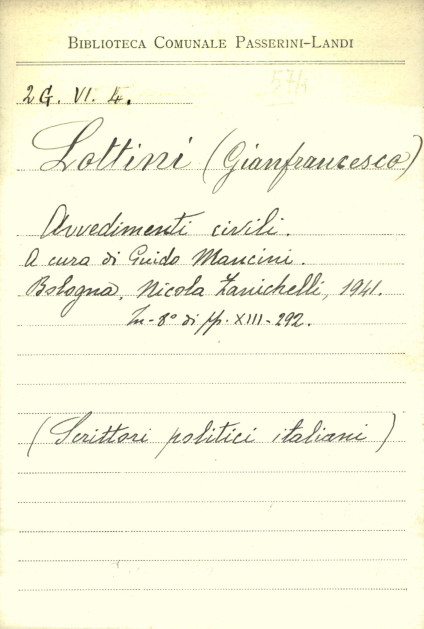 BIBLIOTECA COMUNALE PASSERINI-LANDI
2 G. VI. 4.
Lottini (Gianfrancesco)
Avvedimenti civili.
A cura di Guido Mancini.
Bologna, Nicola Zanichelli, 1941.
In-8° di pp. XIII-292.
(Scrittori politici italiani)